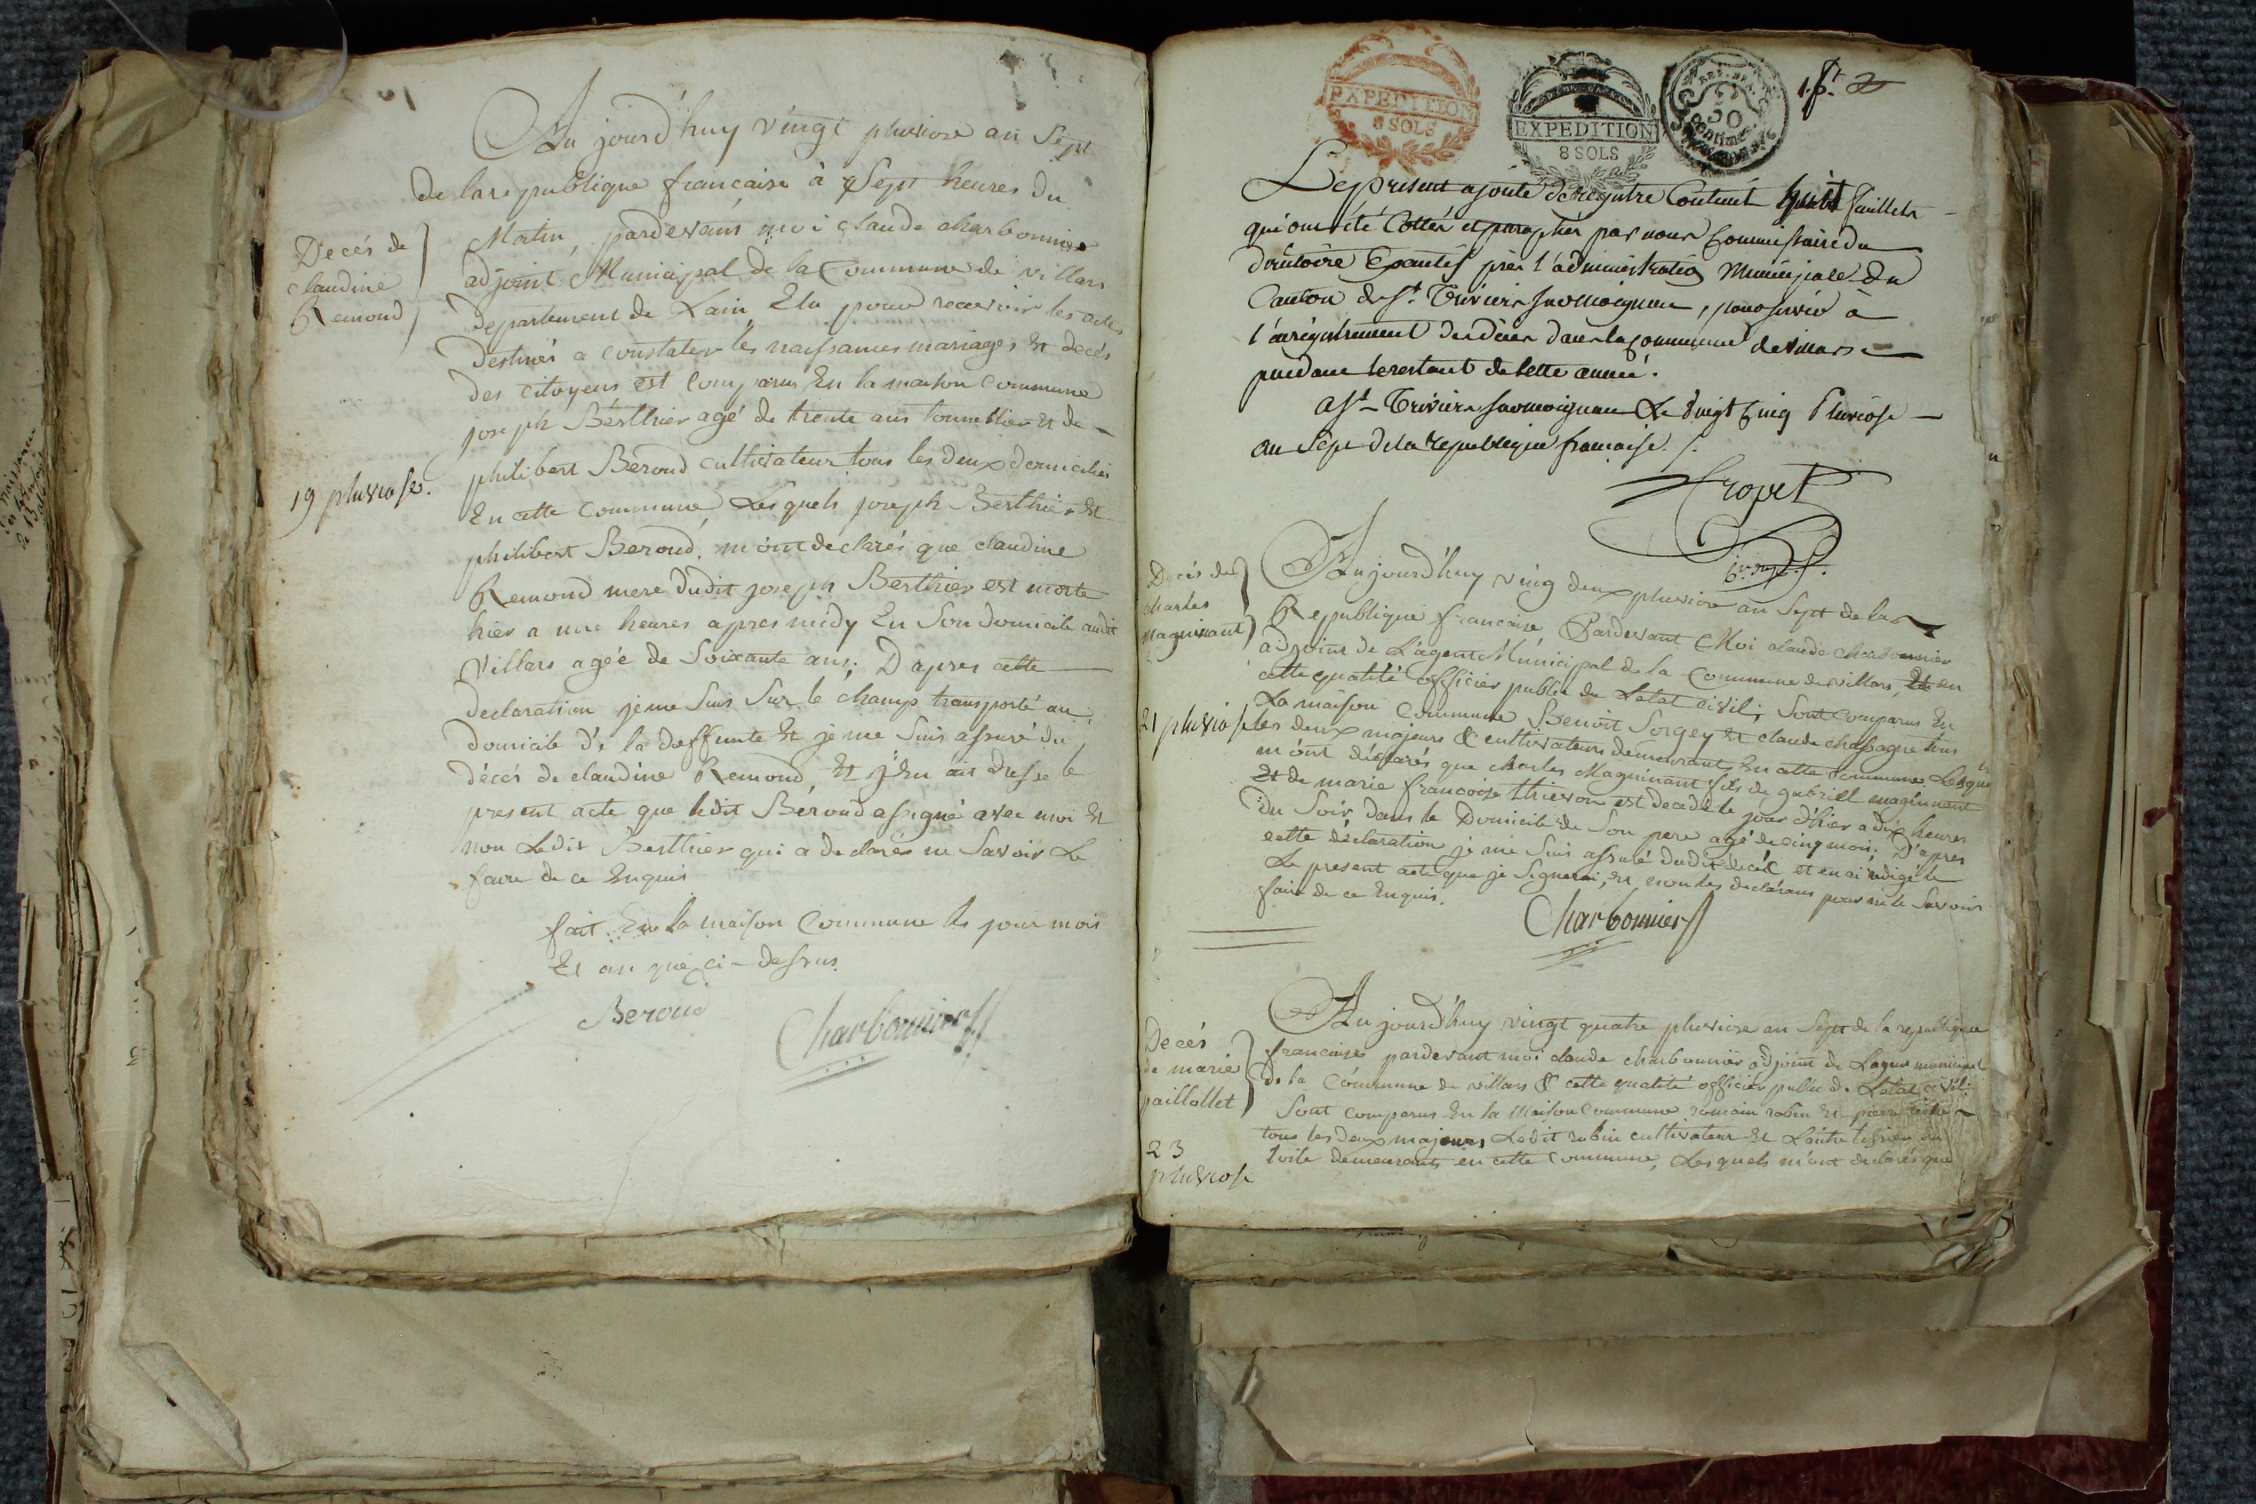 Aujourd'huy vingt pluviose an Sept
De la republique francaise à Sept heures du
Matin, pardevant moi claude charbonnier
adjoint Municipal de la Commune de villars
Departement de Lain Elu pour recevoir les actes
Destinés a constater les naissances mariages Et decés
Des citoyens est comparus En la maison commune
joseph Berthier agé de trente ans tonnellier Et de
philibert Beroud cultivateur tous les deux domiciliés
En cette Commune, Lesquels joseph Berthier Et
philibert Beroud, m'ont déclarés que claudine
Remond mere dudit joseph Berthier est morte
hier a une heures apres midy En Son domicile audit
Villars agée de Soixante ans; D'apres cette
declaration je me Suis Sur le champ transporté au
domicile de la deffunte Et je me Suis assuré du
décés de claudine Remond Et j'En ais dressé le
present acte que ledit Béroud a signé avec moi Et
non Ledit Berthier qui a declarés ne Savoir Le
faire de ce Enquis
fait En la maison Commune les jour mois
Et an que ci-dessus
Beroud
Charbonnier
Decés de
claudine
Remond
19 pluviose.
EXPEDITION
8 SOLS
EXPEDITION
8 SOLS
50
Centimes
Le present ajouté de registre Contient huit feuillets
qui ont été Cottés et paraphés par nous Commissaire du
directoire Executif près l'administration Municipale du
Canton de St. Trivier sur moignans, pour servir à
l'enregistrement des décès dans la commune de villars
pendant le restant de cette année.
a St- Trivier sur moignans Le vingt Cinq Pluviose
an Sept de la republique francaise ./.
Decés de
charles
Maguinant
21 pluviose
Aujourd'huy vingt deux pluviose an Sept de la
Republique francaise, Pardevant Moi claude charbonnier
adjoint de L'agent Municipal de la Commune de villars, en
cette qualité officier public de Letat civil; Sont comparus En
La maison Commune Benoit Sorgey Et claude chassagne tous
les deux majeurs & cultivateurs demeurants En cette Commune. Lesquels
m'ont déclarés que charles Maguinant fils de gabriel maguinant
Et de marie francoise thievon est decedé le jour d'hier a dix heures
du Soir, dans le Domicile de Son pere agé de cinq mois; D'apres
cette déclaration je me Suis assuré dudit decés et en ai rédigé le
Le present acte que je Signerai, Et non les declarans pour ne le Savoir
faire de ce Enquis.
Charbonnier
Decés
de marie
paillollet
23
pluviose
Aujourd'huy vingt quatre pluviose an Sept de la republique
francaise pardevant moi claude charbonnier adjoint de Lagent municipal
de la Commune de villars & cette qualité officier public de Letat civil;
Sont comparus En la Maison Commune romain robin Et pierre
tous les deux majeurs Ledit robin cultivateur Et Lautre tissier en
toile demeurants en cette Commune, Lesquels m'ont declarés que